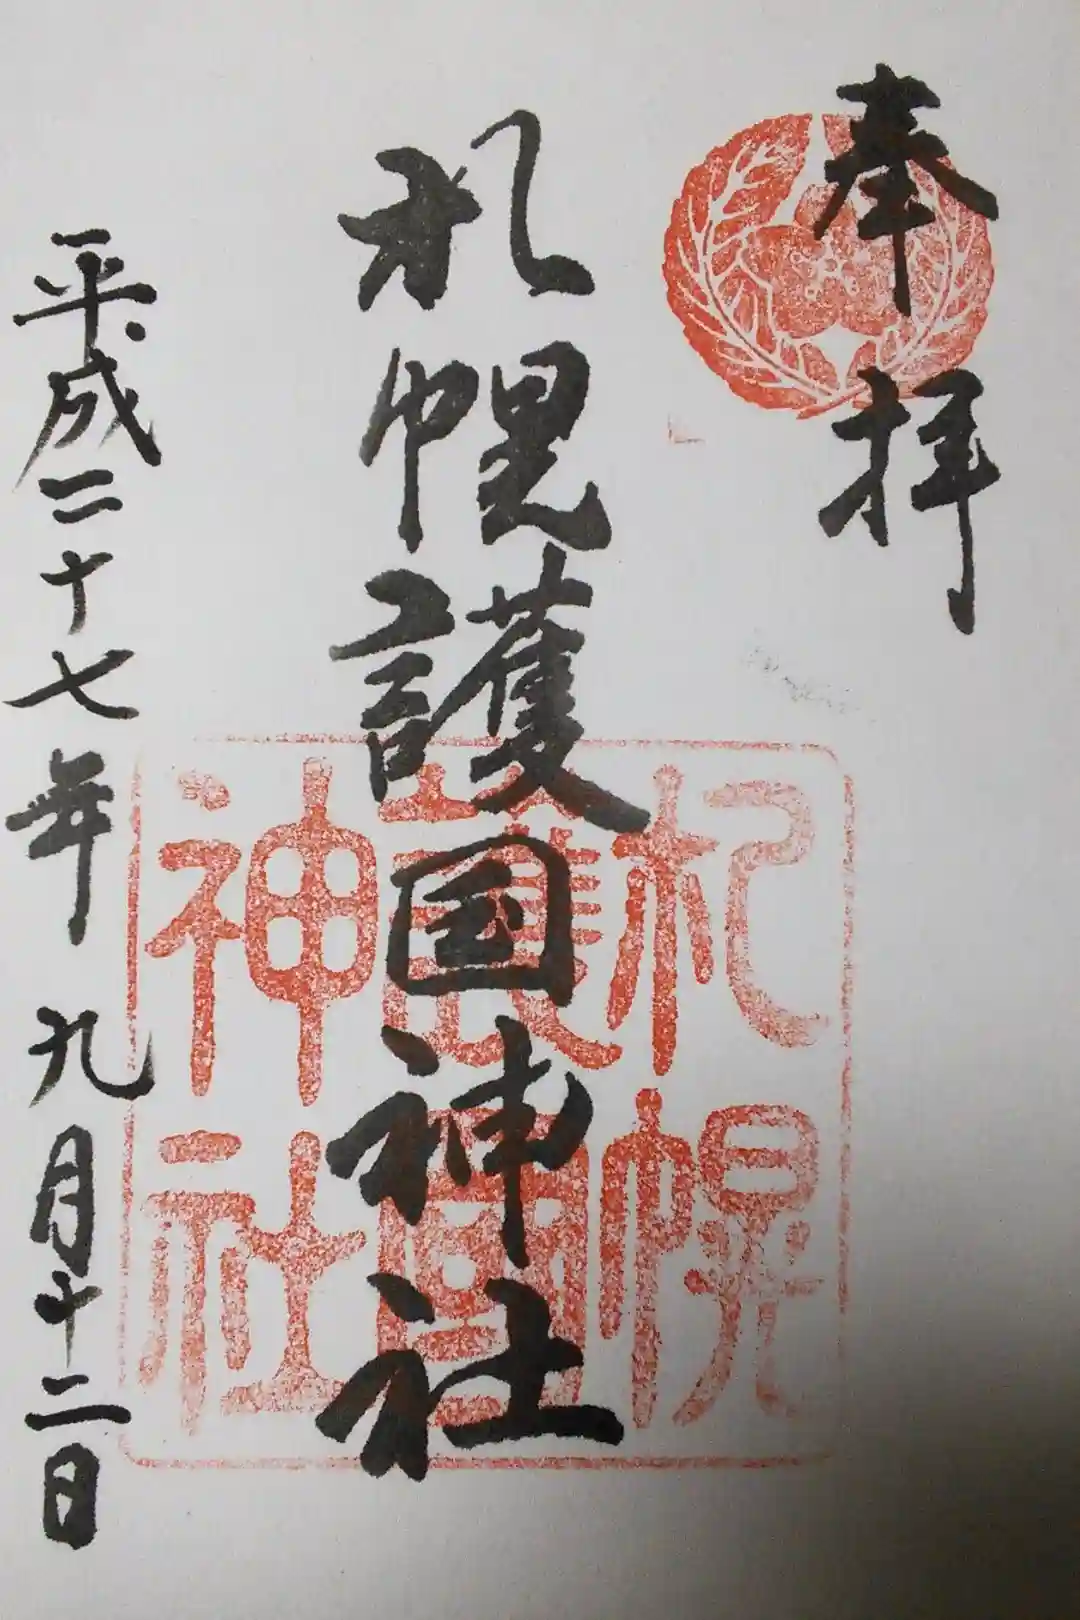 奉拝
札幌護国神社
平成二十七年九月十二日
札幌
護國
神社